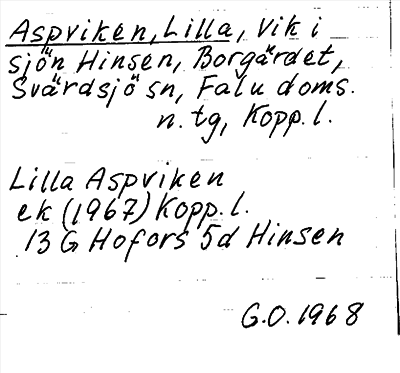 Aspviken, Lilla, Vik i
sjön Hinsen, Borgärdet,
Svärdsjö sn, Falu doms.
n. tg, Kopp. l.
Lilla Aspviken
ek (1967) Kopp. l.
13 G Hofors 5d Hinsen
G.O. 1968